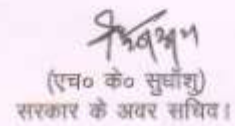 (एच० के० सुधाँशु)
सरकार के अवर सचिव।